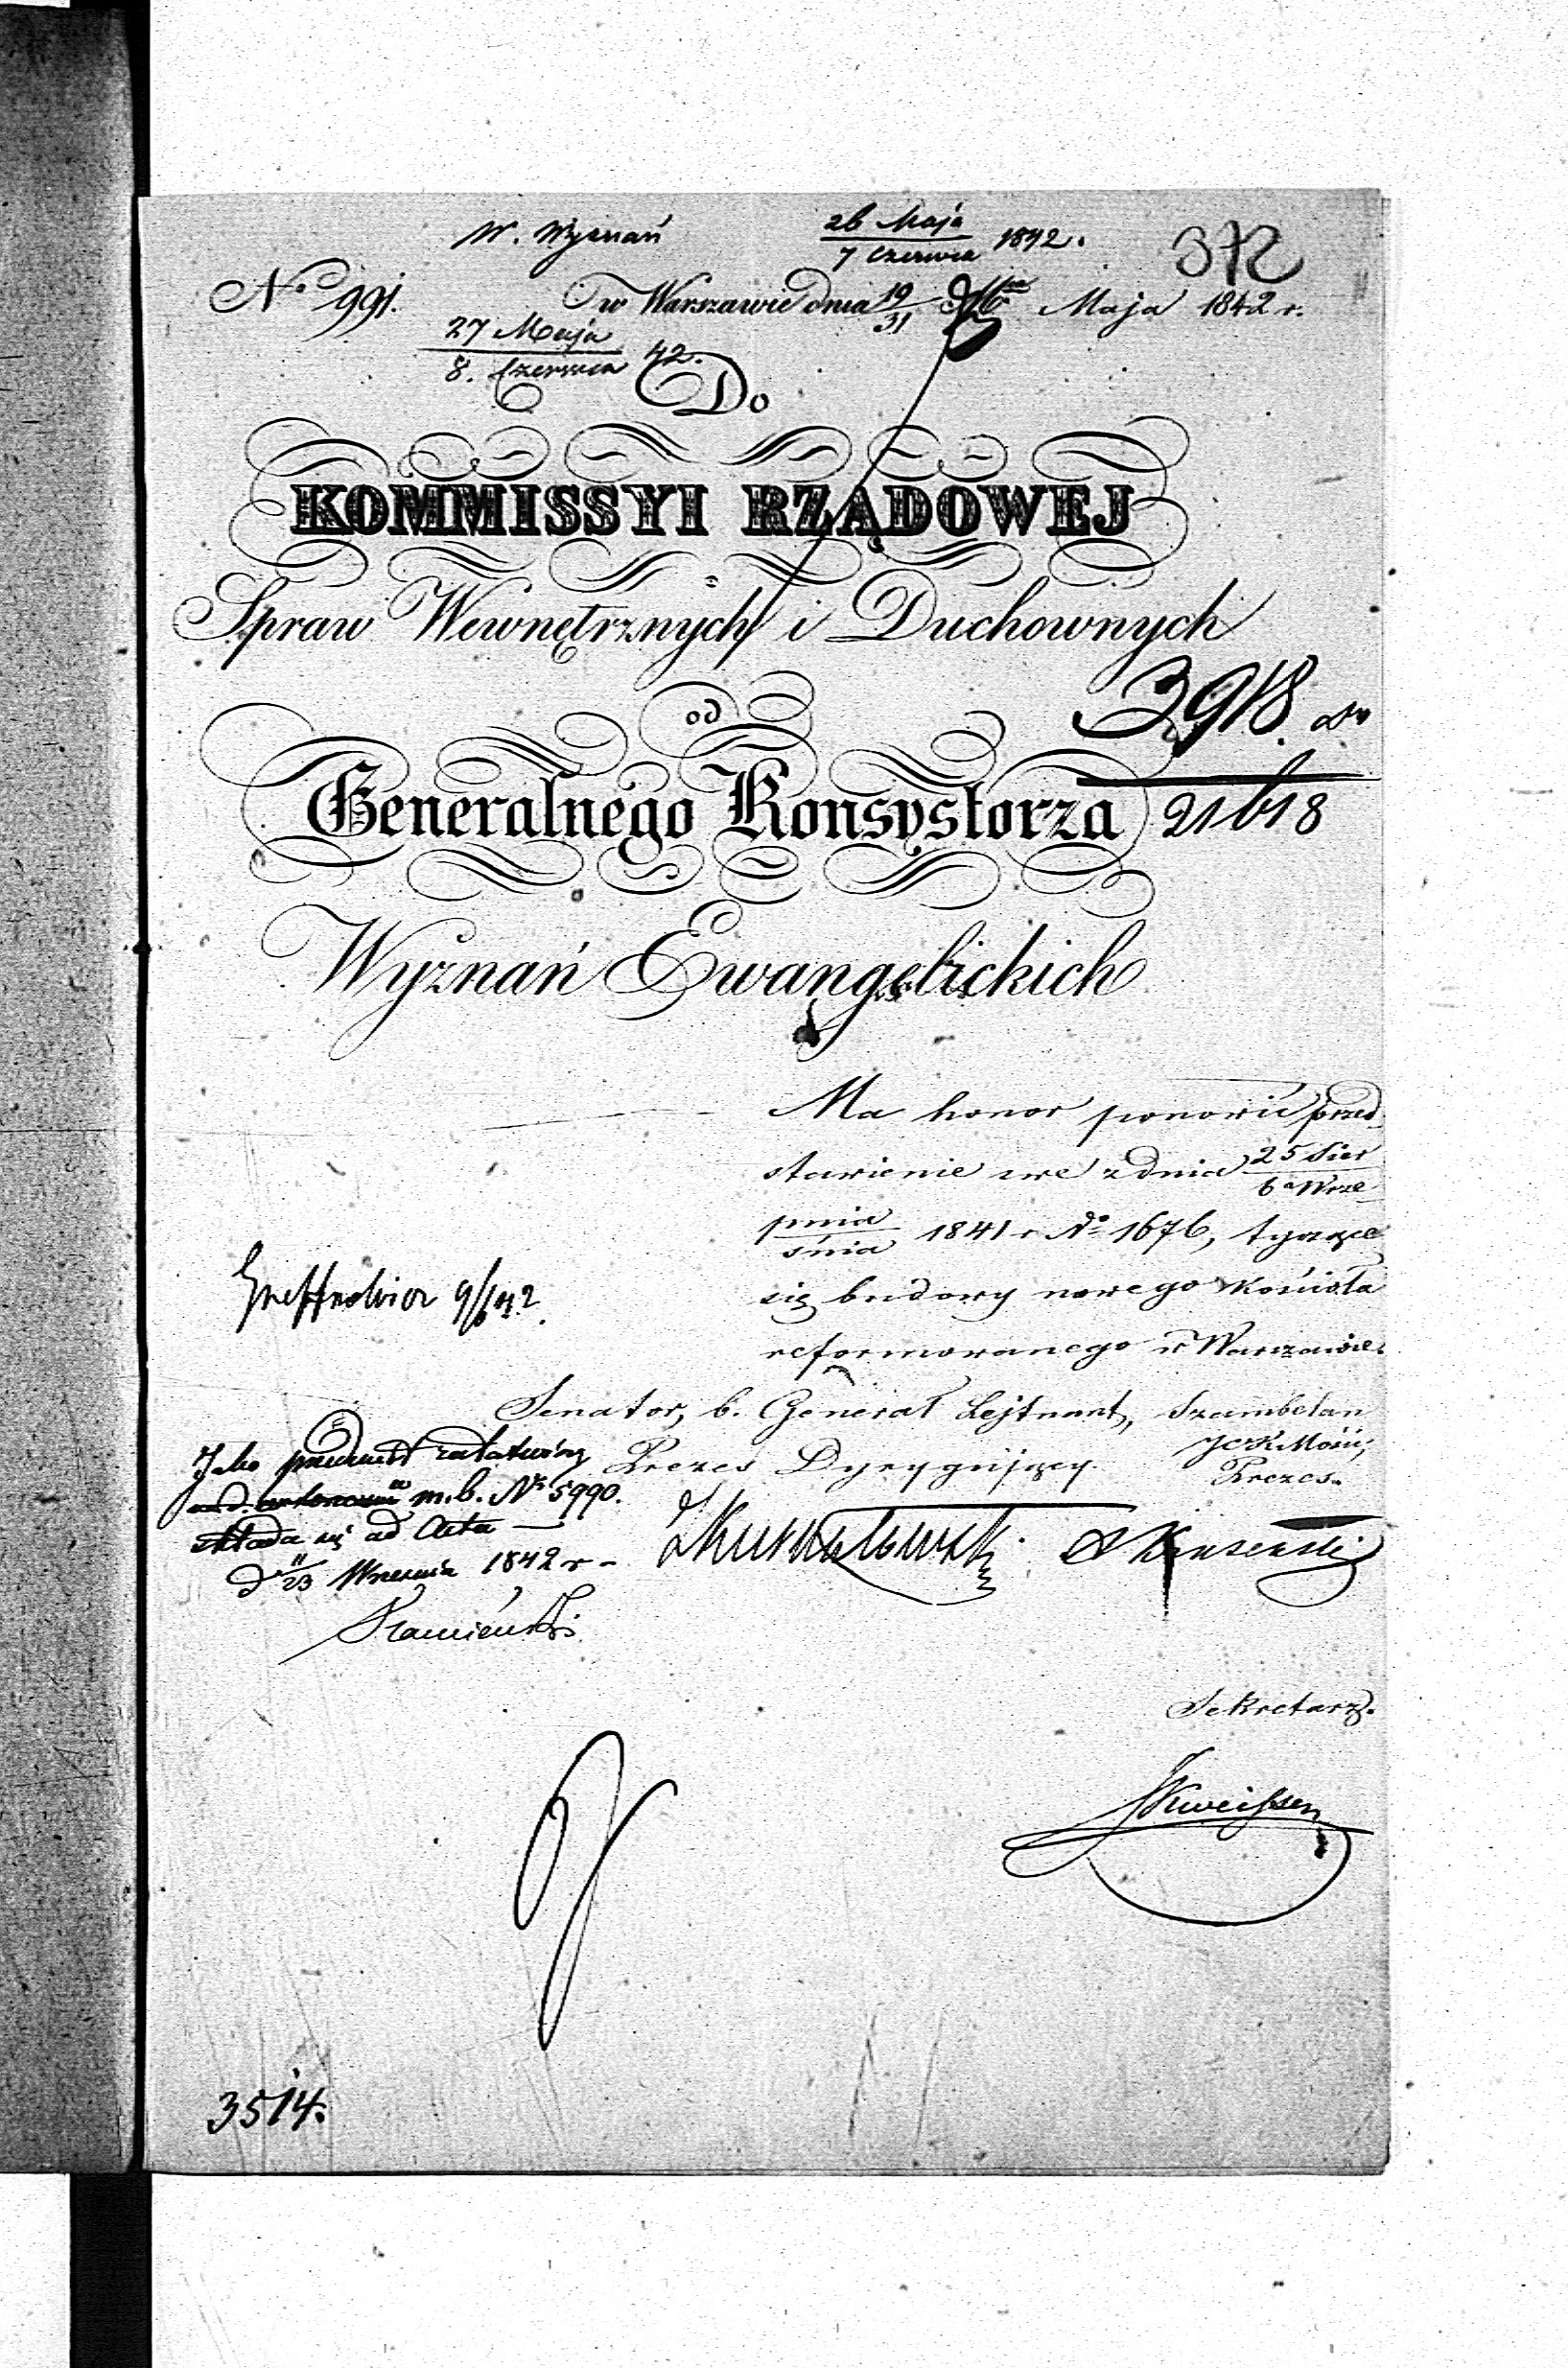 W. Wyznań 26 Maja / 7 Czerwca 1842.
372
No 991. w Warszawie dnia 19/31 Maja 1842 r.
27 Maja / 8. Czerwca 42.
Do
KOMMISSYI RZĄDOWEJ
Spraw Wewnętrznych i Duchownych
3918.
od
21618
Generalnego Konsystorza
Wyznań Ewangelickich
Ma honor ponowić przed-
stawienie swe z dnia 25 Sier / 6o Wrze-
pnia / śnia 1841 r No 1676, tyczące
się budowy nowego kościoła
reformowanego w Warszawie.
9/6 42.
Senator, b. Generał Lejtnant, Szambelan
Prezes Dyrygujący. JCK Mości,
Prezes.
Jako przedmiot załatwiony
m. b. No 5990.
składa się ad Acta —
d 11/23 Września 1842 r –
Sekretarz.
3514.